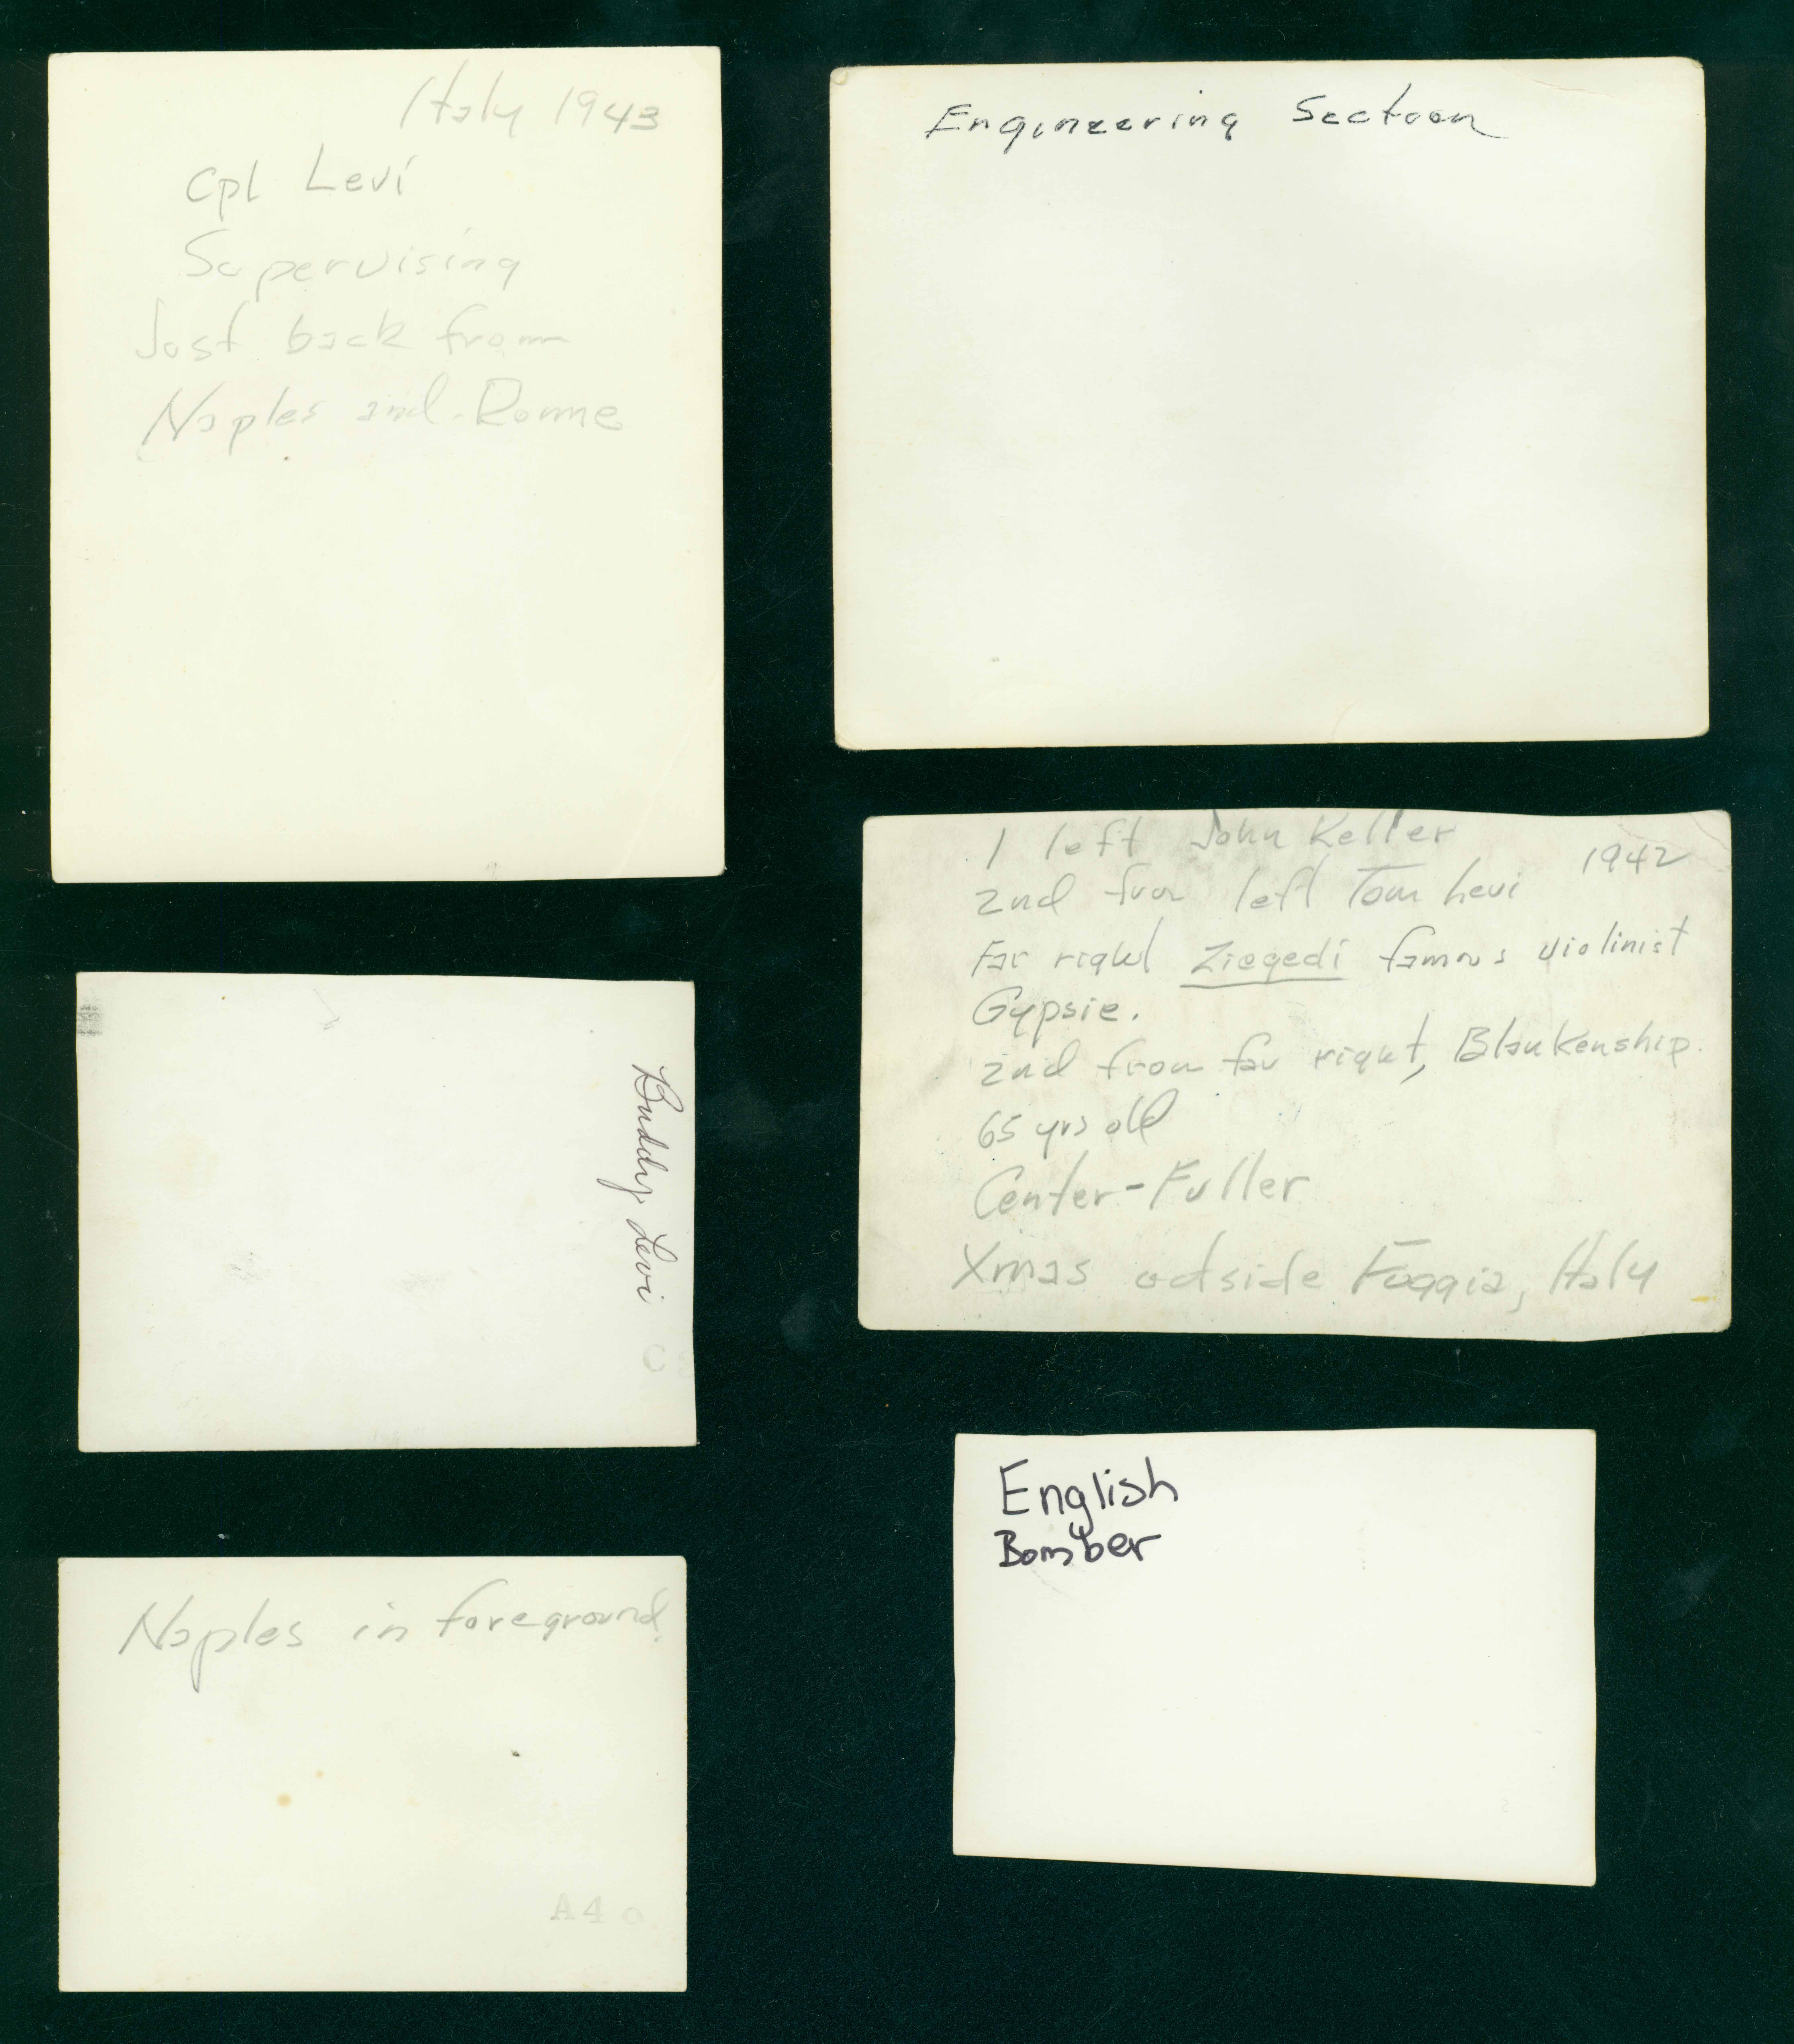 Italy 1943
Cpl Levi
Supervising
Just back from
Naples and Rome
Engineering Section
1 left John Keller
1942
2nd from left Tom Levi
Far right Ziegedi famous violinist
Gypsie.
2nd from far right, Blankenship.
65 yrs old
Center-Fuller
Xmas outside Foggia, Italy
Buddy Levi
English
Bomber
Naples in foreground.
A4